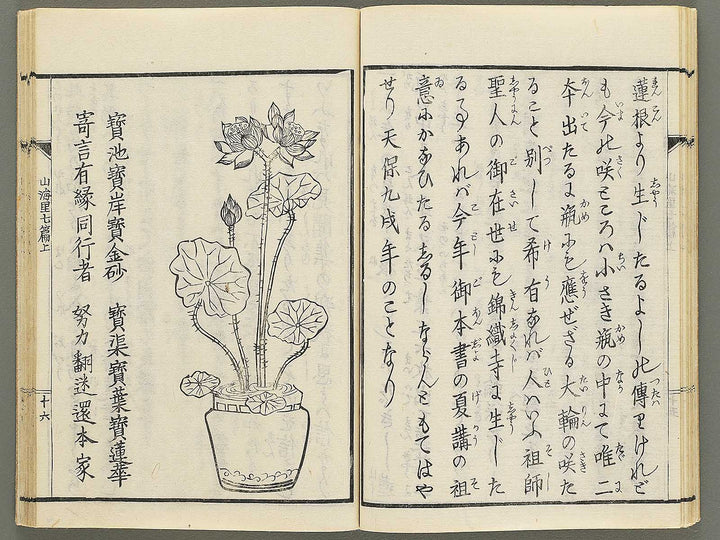 蓮根より生じたるよしの傳りけれど
も今の咲ところハ小さき瓶の中にて唯二
本出たるに瓶にも應ぜざる大輪の咲た
ること別して希有なれバ人ハいふ祖師
聖人の御在世にも錦織寺に生じた
る事あれバ今年御本書の夏講の祖
意にかなひたるしるしならんともてはや
せり天保九戌年のことなり
寶池寶岸寶金砂 寶渠寶葉寶蓮華
寄言有縁同行者 努力翻迷還本家
山海里七篇上
十六